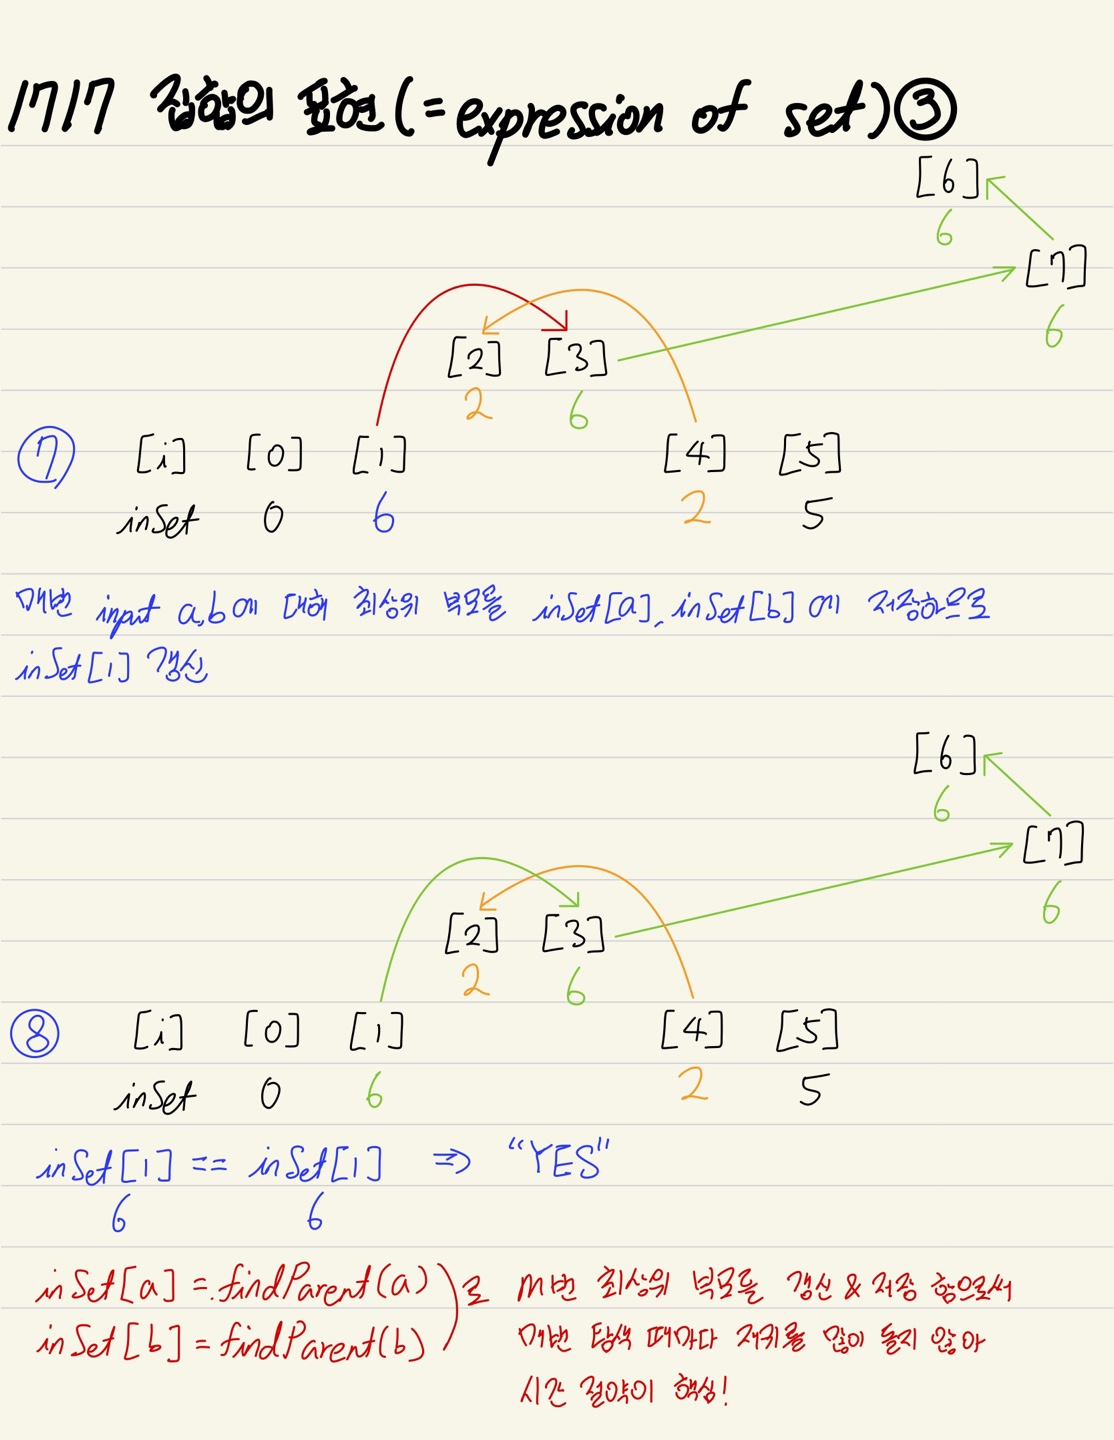 1717 집합의 표현(=expression of set)③
[6]
6
[7]
6
[2] [3]
2 6
⑦ [i] [0] [1] [4] [5]
inSet 0 6 2 5
매번 input a,b에 대해 최상위 부모를 inSet[a], inSet[b]에 저장하므로
inSet[1] 갱신
[6]
6
[7]
6
[2] [3]
2 6
⑧ [i] [0] [1] [4] [5]
inSet 0 6 2 5
inSet[1] == inSet[1] ⇒ "YES"
6 6
inSet[a] = findParent(a) ) 로 m번 최상위 부모를 갱신 & 저장 함으로써
inSet[b] = findParent(b) 매번 탐색 때마다 재귀를 많이 돌지 않아
시간 절약이 핵심!